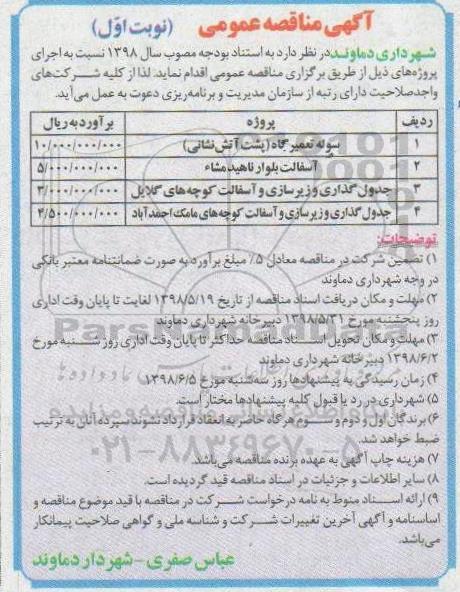 آگهی مناقصه عمومی (نوبت اوّل)
شهرداری دماوند در نظر دارد به استناد بودجه مصوب سال ۱۳۹۸ نسبت به اجرای
پروژه‌های ذیل از طریق برگزاری مناقصه عمومی اقدام نماید. لذا از کلیه شرکت‌های
واجدصلاحیت دارای رتبه از سازمان مدیریت و برنامه‌ریزی دعوت به عمل می‌آید.
ردیف پروژه برآورد به ریال
۱ سوله تعمیرگاه (پشت آتش‌نشانی) ۱۰/۰۰۰/۰۰۰/۰۰۰
۲ آسفالت بلوار ناهید مشاء ۵/۰۰۰/۰۰۰/۰۰۰
۳ جدول‌گذاری و زیرسازی و آسفالت کوچه‌های گلایل ۳/۰۰۰/۰۰۰/۰۰۰
۴ جدول‌گذاری و زیرسازی و آسفالت کوچه‌های مامک احمدآباد ۴/۵۰۰/۰۰۰/۰۰۰
توضیحات:
۱) تضمین شرکت در مناقصه معادل ۵٪ مبلغ برآورد به صورت ضمانتنامه معتبر بانکی
در وجه شهرداری دماوند
۲) مهلت و مکان دریافت اسناد مناقصه از تاریخ ۱۳۹۸/۵/۱۹ لغایت تا پایان وقت اداری
روز پنجشنبه مورخ ۱۳۹۸/۵/۳۱ دبیرخانه شهرداری دماوند
۳) مهلت و مکان تحویل اسناد مناقصه حداکثر تا پایان وقت اداری روز شنبه مورخ
۱۳۹۸/۶/۲ دبیرخانه شهرداری دماوند
۴) زمان رسیدگی به پیشنهادها روز سه‌شنبه مورخ ۱۳۹۸/۶/۵
۵) شهرداری در رد یا قبول کلیه پیشنهادها مختار است.
۶) برندگان اول و دوم و سوم هرگاه حاضر به انعقاد قرارداد نشوند سپرده آنان به ترتیب
ضبط خواهد شد.
۷) هزینه چاپ آگهی به عهده برنده مناقصه می‌باشد.
۸) سایر اطلاعات و جزئیات در اسناد مناقصه قید گردیده است.
۹) ارائه اسناد منوط به نامه درخواست شرکت در مناقصه با قید موضوع مناقصه و
اساسنامه و آگهی آخرین تغییرات شرکت و شناسه ملی و گواهی صلاحیت پیمانکار
می‌باشد.
عباس صفری - شهردار دماوند
ParsNamadData
۰۲۱-۸۸۳۴۹۶۷۰-۵